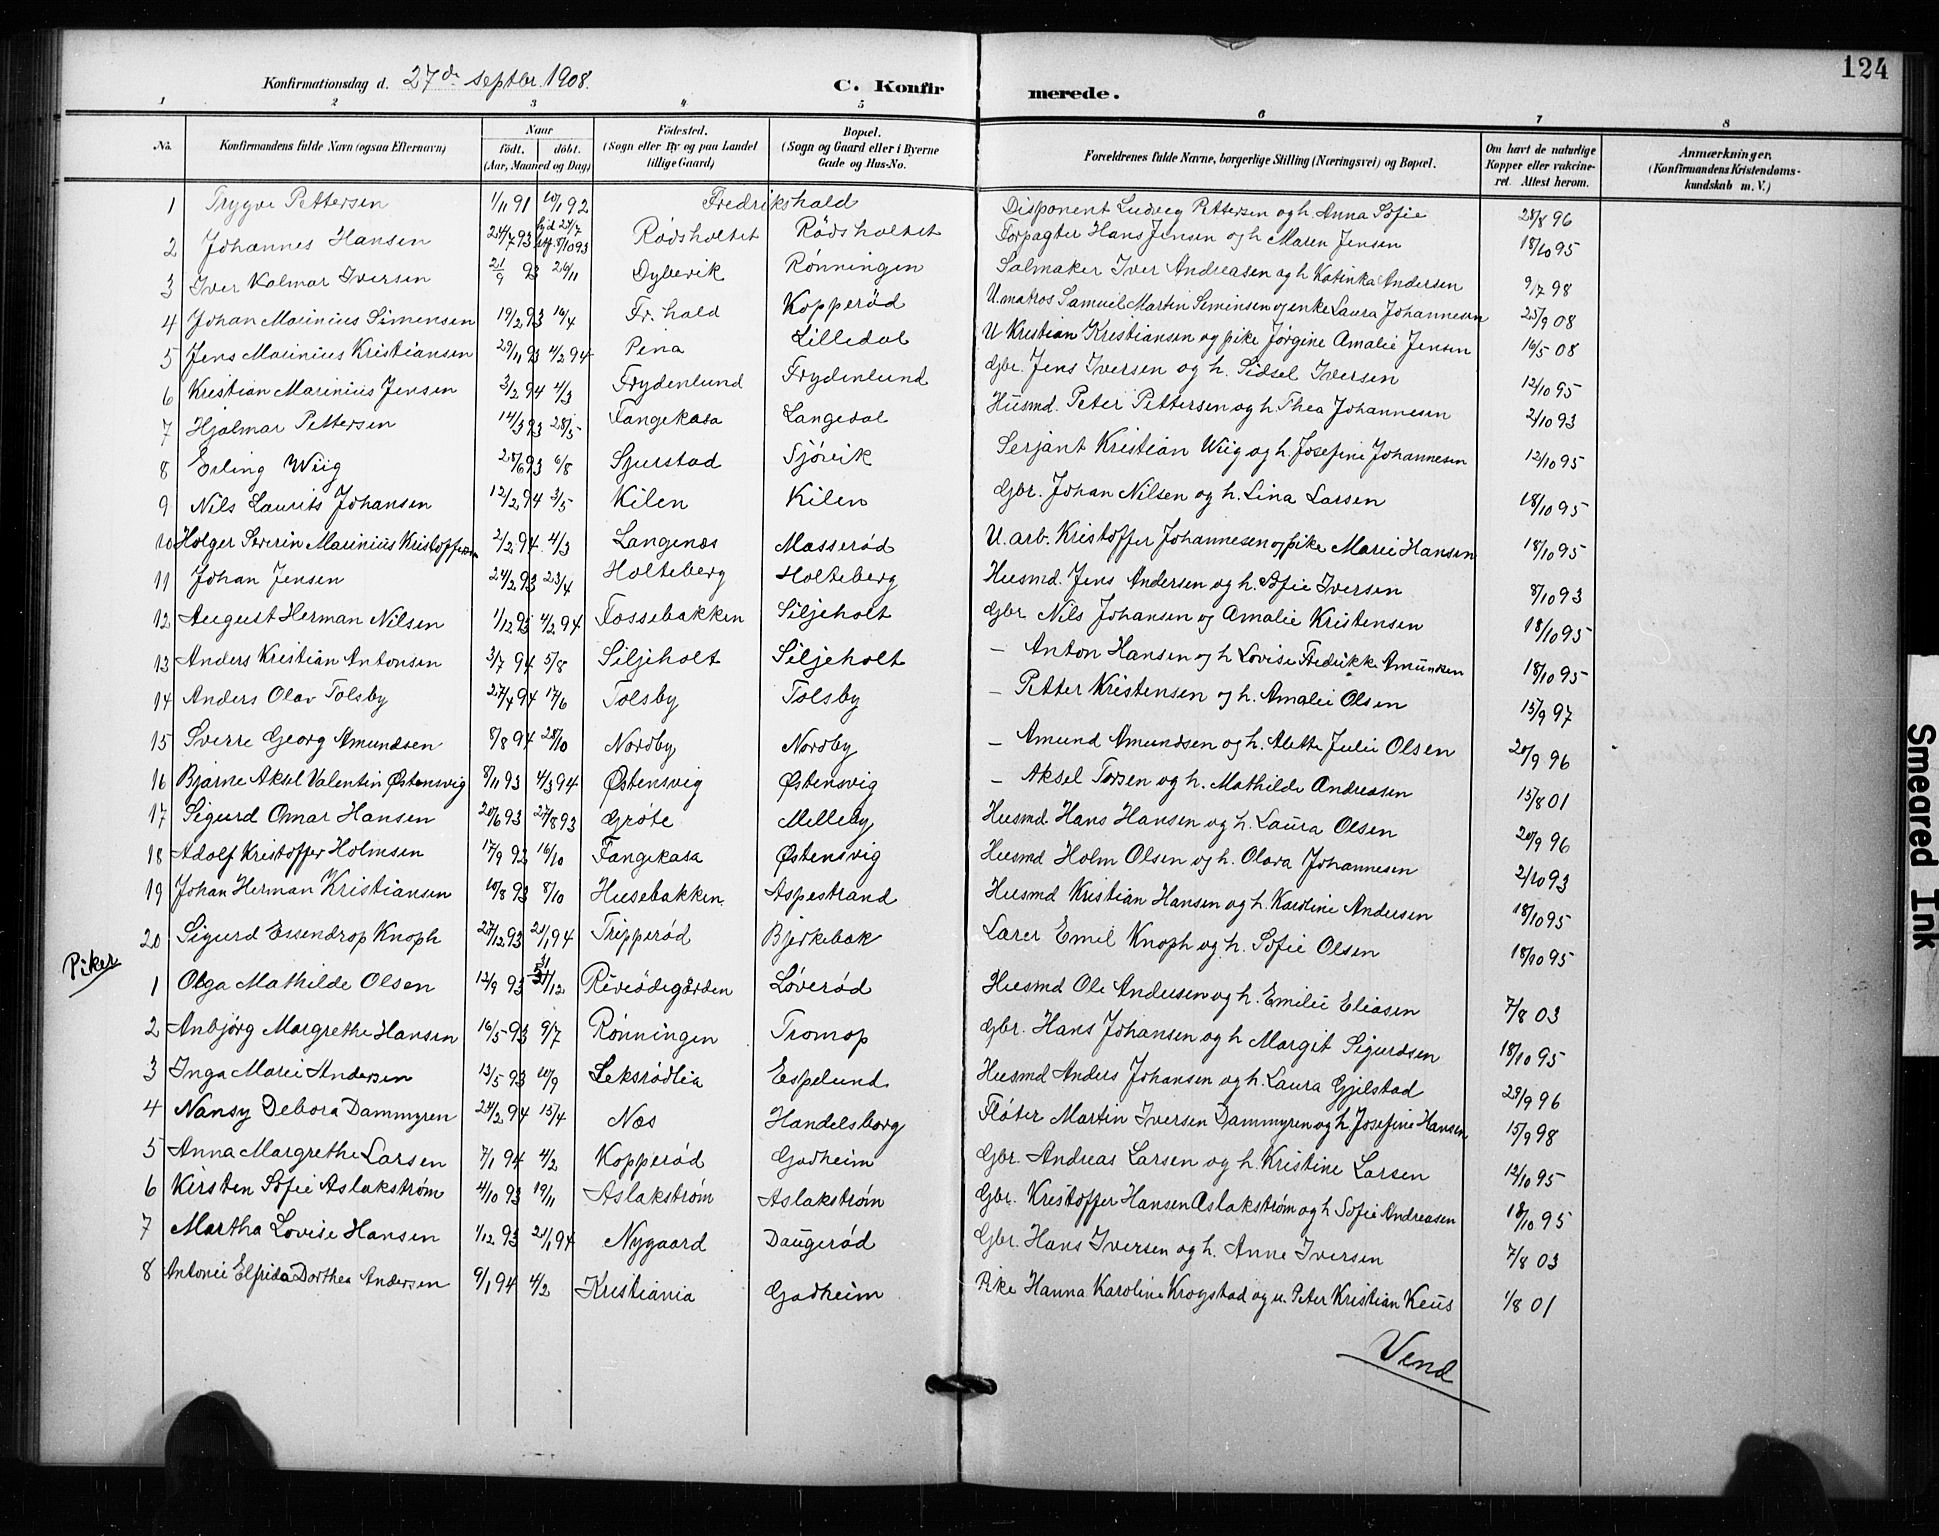 124
Konfirmationsdag d. 27de septbr. 1908.
C. Konfirmerede.
1 2 3 4 5 6 7 8
No. Konfirmandens fulde Navn (ogsaa Efternavn) Naar født. døbt. (Aar, Maaned og Dag) Fødested. (Sogn eller By og paa Landet tillige Gaard) Bopæl. (Sogn og Gaard eller i Byerne Gade og Hus-No. Forældrenes fulde Navne, borgerlige Stilling (Næringsvei) og Bopæl. Om havt de naturlige Kopper eller vakcineret. Attest herom. Anmærkninger. (Konfirmandens Kristendomskundskab m. V.)
1 Trygve Pettersen 1/11 91 10/1 92 Fredrikshald Disponent Ludvig Pettersen og h. Anna Sofie 28/8 96
2 Johannes Hansen 24/7 93 hjd 24/7 bkj. 8/10 93 Rødsholtet Rødsholtet Forpagter Hans Jensen og h Maren Jensen 18/10 95
3 Iver Valmar Iversen 21/9 93 26/11 Dybevik Rønningen Salmaker Iver Andreasen og h Katinka Andersen 9/7 98
4 Johan Marinius Simensen 19/2 93 16/4 Fr. hald Kopperød U. matros Samuel Martin Semensen og enke Laura Johannesen 25/9 08
5 Jens Marinius Kristiansen 29/11 93 4/2 94 Pina Lilledal U Kristian Kristiansen og pike Jørgine Amalie Jensen 16/5 08
6 Kristian Marinius Jensen 3/2 94 4/3 Frydenlund Frydenlund Gbr. Jens Iversen og h. Sidsel Iversen 12/10 95
7 Hjalmar Pettersen 14/3 93 28/5 Fangekasa Langedal Husmd. Peter Pettersen og h. Thea Johannesen 2/10 93
8 Erling Wiig 28/6 93 6/8 Sjurstad Sjøvik Serjant Kristian Wiig og h. Josefine Johannesen 12/10 95
9 Nils Laurits Johansen 12/2 94 3/5 Kilen Kilen Gbr. Johan Nilsen og h. Lina Larsen 18/10 95
10 Holger Severin Marinius Kristoffersen 2/2 94 4/3 Langenæs Masserød U. arb. Kristoffer Johannesen og pike Marie Hansen 18/10 95
11 Johan Jensen 24/2 93 23/4 Holteberg Holteberg Husmd. Jens Andersen og h. Sofie Iversen 8/10 93
12 August Herman Nilsen 1/12 93 4/2 94 Fossebakken Siljeholt Gbr Nils Johansen og Amalie Kristensen 18/10 95
13 Anders Kristian Antonsen 3/7 94 5/8 Siljeholt Siljeholt — Anton Hansen og h Lovise Fredrikke Amundsen 18/10 95
14 Anders Olav Tolsby 27/4 94 17/6 Tolsby Tolsby — Petter Kristensen og h. Amalie Olsen 15/9 97
15 Sverre Georg Amundsen 8/8 94 28/10 Nordby Nordby — Amund Amundsen og h. Alette Julie Olsen 20/9 96
16 Bjarne Aksel Valentin Østensvig 8/11 93 4/3 94 Østensvig Østensvig — Aksel Torsen og h. Mathilde Andreasen 15/8 01
17 Sigurd Omar Hansen 20/6 93 27/8 93 Grøte Melleby Husmd Hans Hansen og h. Laura Olsen 20/9 96
18 Adolf Kristoffer Holmsen 17/9 92 16/10 Fangekasa Østensvig Husmd Holm Olsen og h. Olava Johannesen 2/10 93
19 Johan Herman Kristiansen 10/8 93 8/10 Husebakken Aspestrand Husmd Kristian Hansen og h. Karoline Andersen 18/10 95
20 Sigurd Essendrop Knoph 27/12 93 21/1 94 Tripperød Bjerkebæk Lærer Emil Knoph og h. Sofie Olsen 18/10 95
Piker
1 Olga Mathilde Olsen 12/9 93 31/12 Riverødegården Løverød Husmd Ole Andersen og h. Emilie Eliasen 7/8 03
2 Anbjørg Margrethe Hansen 16/5 93 9/7 Rønningen Tromop Gbr. Hans Johansen og h Margit Sigurdsen 18/10 95
3 Inga Marie Andersen 13/5 93 10/9 Leksrødlia Espelund Husmd Anders Johansen og h. Laura Gjelstad 29/9 96
4 Nansy Debora Dammyren 24/2 94 15/4 Næs Handelsborg Fløter Martin Iversen Dammyren og h. Josefine Hansen 15/9 98
5 Anna Margrethe Larsen 7/1 94 4/2 Kopperød Gadheim Gbr. Andreas Larsen og h. Kristine Larsen 12/10 95
6 Kirsten Sofie Aslakstrøm 4/10 93 19/11 Aslakstrøm Aslakstrøm Gbr. Kristoffer Hansen Aslakstrøm og h Sofie Andreasen 18/10 95
7 Martha Lovise Hansen 1/12 93 21/1 94 Nygaard Daugerød Gbr. Hans Iversen og h. Anne Iversen 7/8 03
8 Antonie Elfrida Dorthea Andersen 6/1 94 4/2 Kristiania Gadheim Pike Hanna Karoline Krogstad og u. Peter Kristian Keus 1/8 01
Vend
Smeared Ink